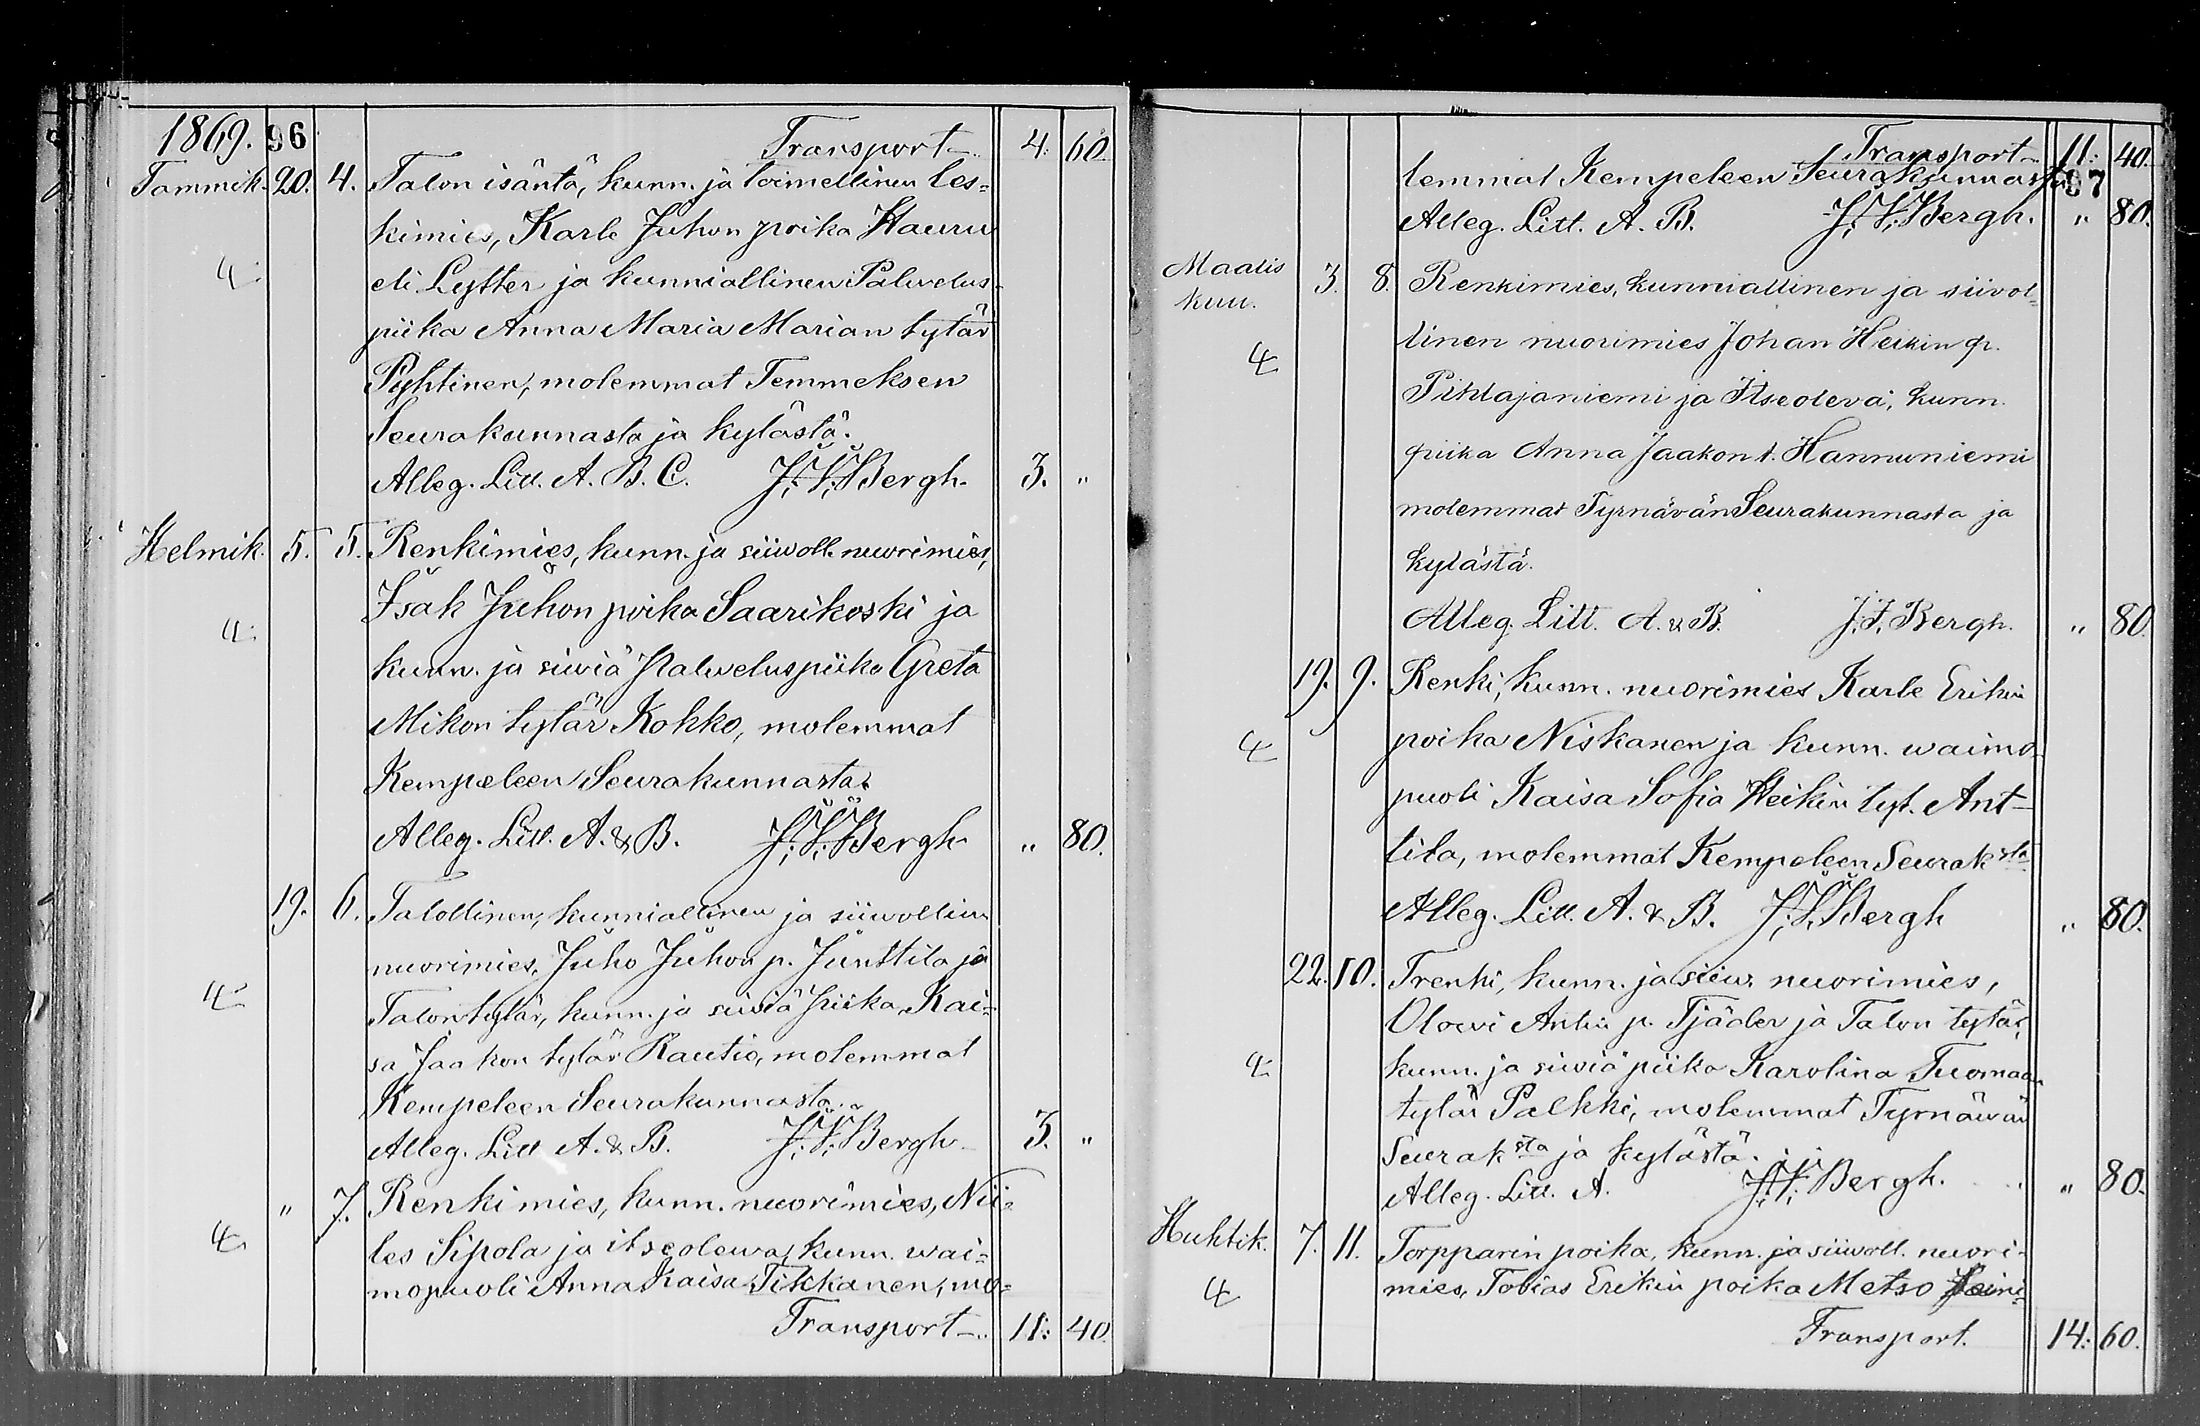 1869. 96 Transport 4. 60.
Tammik. 20. 4. Talon isäntä, kunn. ja toimellinen les=
kimies, Karle Juhon poika Hauru
4. eli Lytter ja kunniallinen Palwelus-
piika Anna Maria Marian tytär
Pyhtinen, molemmat Temmeksen
Seurakunnasta ja kylästä.
Alleg. Litt. A. B. C. J. V. Bergh. 3. "
Helmik. 5. 5. Renkimies, kunn. ja siiwoll. nuorimies,
Isak Juhon poika Saarikoski ja
4. kunn. ja siwiä Palweluspiika Greta
Mikon tytär Kokko, molemmat
Kempeleen Seurakunnasta.
Alleg. Litt. A. & B. J. V. Bergh " 80.
19. 6. Talollinen, kunniallinen ja siiwollinen
nuorimies, Juho Juhon p. Junttila ja
4. Talontytär, kunn. ja siwiä piika Kai=
sa Jaakon tytär Rautio, molemmat
Kempeleen Seurakunnasta.
Alleg. Litt A. & B. J. V. Bergh 3. "
" 7. Renkimies, kunn. nuorimies, Nii=
4. les Sipola ja itseolewa, kunn. wai=
mopuoli Anna Kaisa Tikkanen, mo=
Transport 11: 40.
Transport 11: 40.
lemmat Kempeleen Seurakunnasta 97
Alleg. Litt. A. B. J. V. Bergh. " 80.
Maalis 3. 8. Renkimies, kunniallinen ja siivol=
kuu.
4 linen nuorimies Johan Heikin p.
Pihlajaniemi ja Itseoleva, kunn.
piika Anna Jaakon t. Hannuniemi
molemmat Tyrnävän Seurakunnasta ja
kylästä.
Alleg. Litt. A. & B. J. V. Bergh. " 80.
19. 9. Renki, kunn. nuorimies Karle Erikin
4 poika Niskanen ja kunn. waimo-
puoli Kaisa Sofia Heikin tyt. Ant-
tila, molemmat Kempeleen Seurak sta
Alleg. Litt. A. & B. J. V. Bergh " 80.
22. 10. Trenki, kunn. ja siiw. nuorimies,
Olowi Antin p. Tjäder ja Talon tytär,
4. kunn. ja siwiä piika Karolina Tuomaan
tytär Palkki, molemmat Tyrnäwän
Seurak sta ja kylästä.
Alleg. Litt. A. J. V. Bergh. " 80.
Huhtik. 7. 11. Torpparin poika, kunn. ja siiwoll. nuori-
4 mies, Tobias Erikin poika Metso
Transport. 14: 60.